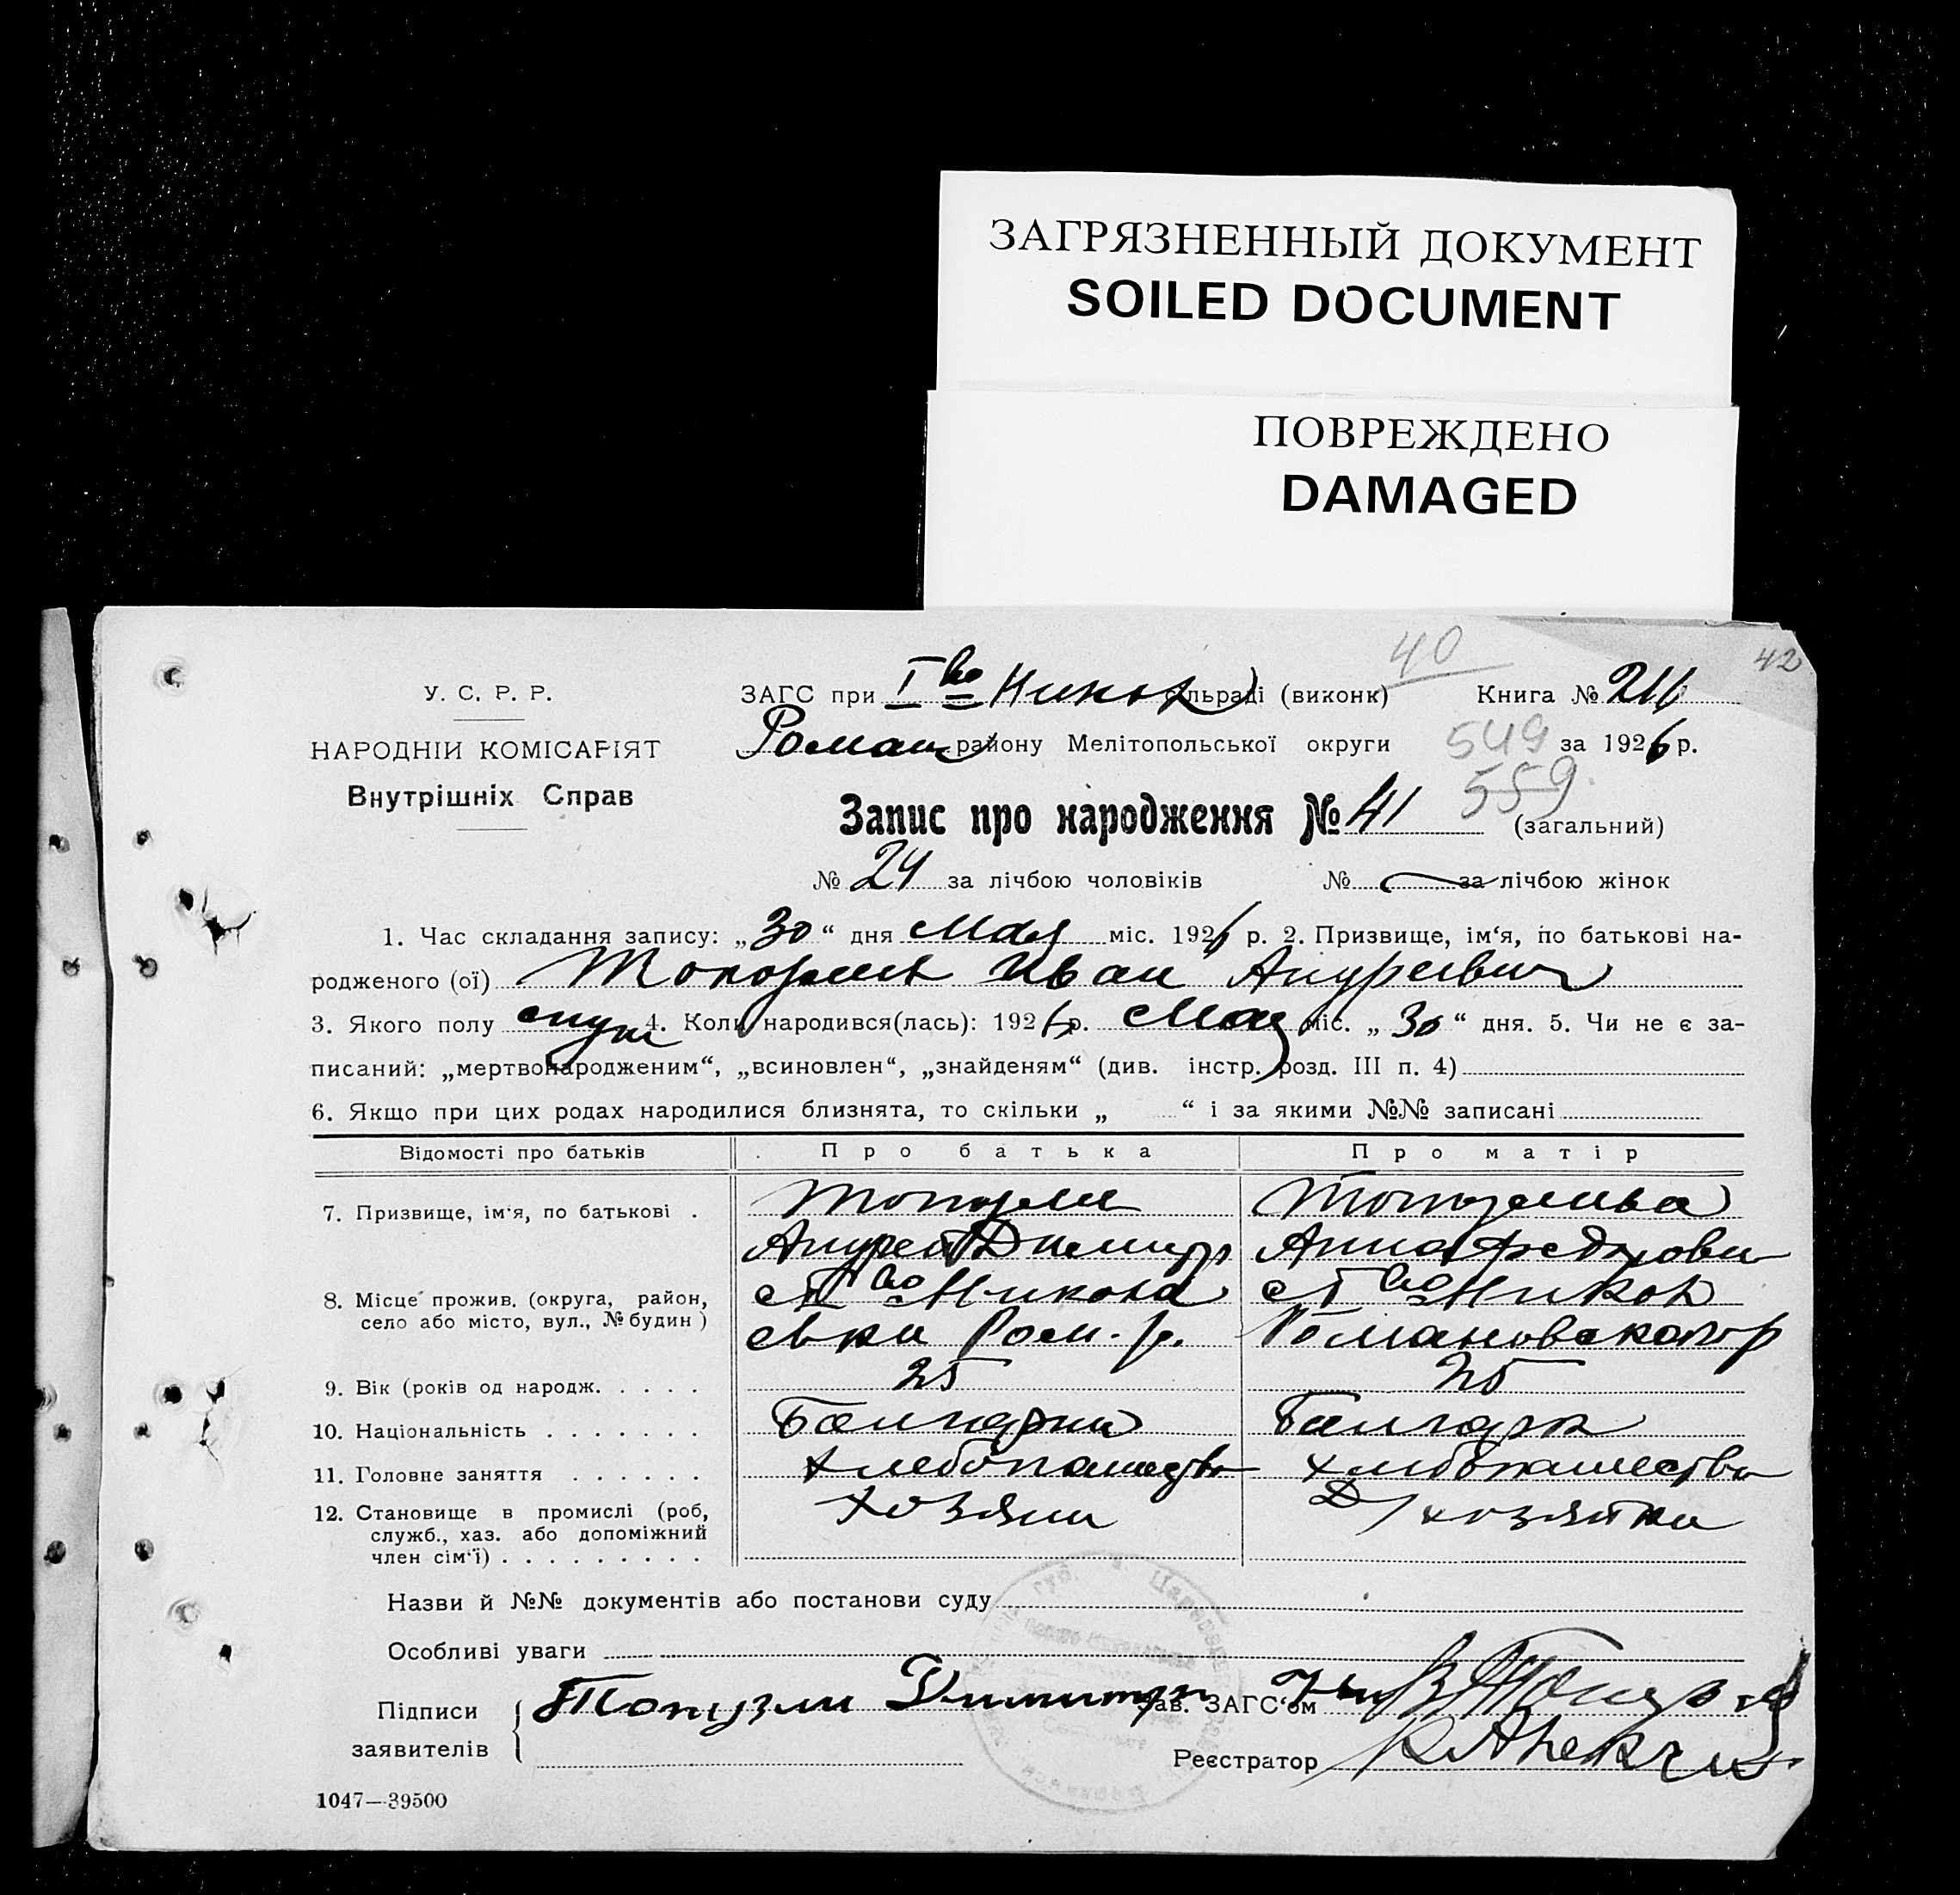 ЗАГРЯЗНЕННЫЙ ДОКУМЕНТ
SOILED DOCUMENT
ПОВРЕЖДЕНО
DAMAGED
40
42
У. С. Р. Р.
ЗАГС при Iво Никол сільраді (виконк) Книга № 216
НАРОДНІЙ КОМІСАРІЯТ
Роман району Мелітопольської округи 549 за 1926 р.
Внутрішніх Справ
559
Запис про народження № 41 (загальний)
№ 24 за лічбою чоловіків № за лічбою жінок
1. Час складання запису: „30“ дня Мая міс. 1926 р. 2. Призвище, ім‘я, по батькові на-
родженого (ої) Иван Андреевич
3. Якого полу муж 4. Коли народився(лась): 1926 р. Мая міс. „30“ дня. 5. Чи не є за-
писаний: „мертвонародженим“, „всиновлен“, „знайденям“ (див. інстр. розд. III п. 4)
6. Якщо при цих родах народилися близнята, то скільки „ “ і за якими №№ записані
Відомості про батьків Про батька Про матір
7. Призвище, ім‘я, по батькові .
Андрей Димитр Анна Федорови
8. Місце прожив. (округа, район, с Iво Никола с Iво Никол
село або місто, вул., № будин) евки Ром. р. Романовского р
9. Вік (років од народж. . . . . 25 25
10. Національність . . . . . . . Болгарин Болгарк
11. Головне заняття . . . . . . хлебопашество хлебопашество
12. Становище в промислі (роб, хозяин Д/хозяйка
служб., хаз. або допоміжний
член сім‘ї) . . . . . . . . .
Назви й №№ документів або постанови суду
Особливі уваги
Підписи Топузли Димитр Зав. ЗАГС‘ом
заявителів Реєстратор
1047—39500